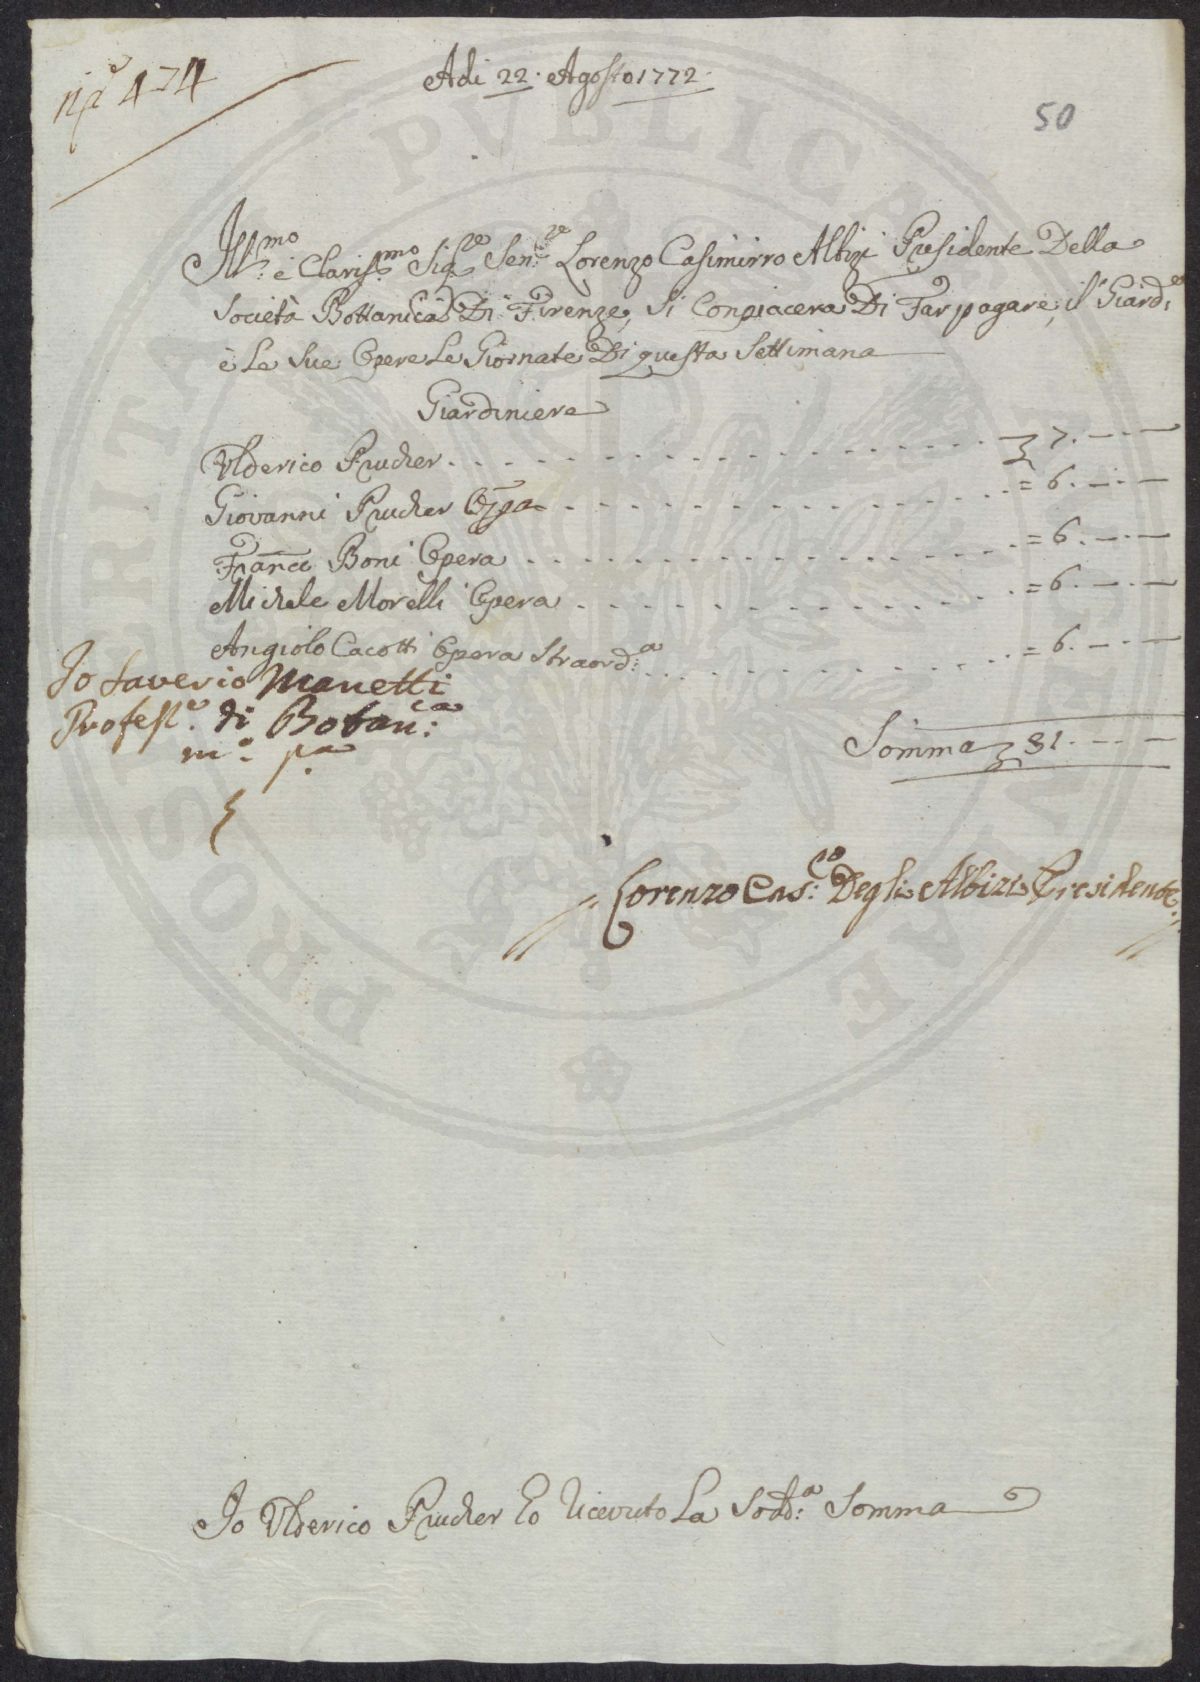 Adi 22. Agosto 1772.
n.º 474
50
Ill.mo è Claris.mo Sig.re Sen.re Lorenzo Casimirro Albizi Presidente Della
Società Bottanica Di Firenze, Si Conpiacera Di Far pagare, il Giard.e
è Le Sue Opere Le Giornate Di questa Settimana
Giardiniere
Ulderico Prucher . . . . . 7. — . —
Giovanni Prucher . . . . . = 6. — . —
Franc. Boni Opera . . . . . = 6. — . —
Michele Morelli Opera . . . . . = 6. — . —
Angiolo Cacotti Opera Straord:a . . . . . = 6. — . —
Io Saverio Manetti
Profess.e di Botan:ca
m.o p.a
Somma 31. — . —
Lorenzo Cas:ro Degli Albizi Presidente
Io Ulderico Prucher Eo Ricevuto La Sodd:a Somma
PROSPERITATI PVBLICAE AVGENDAE